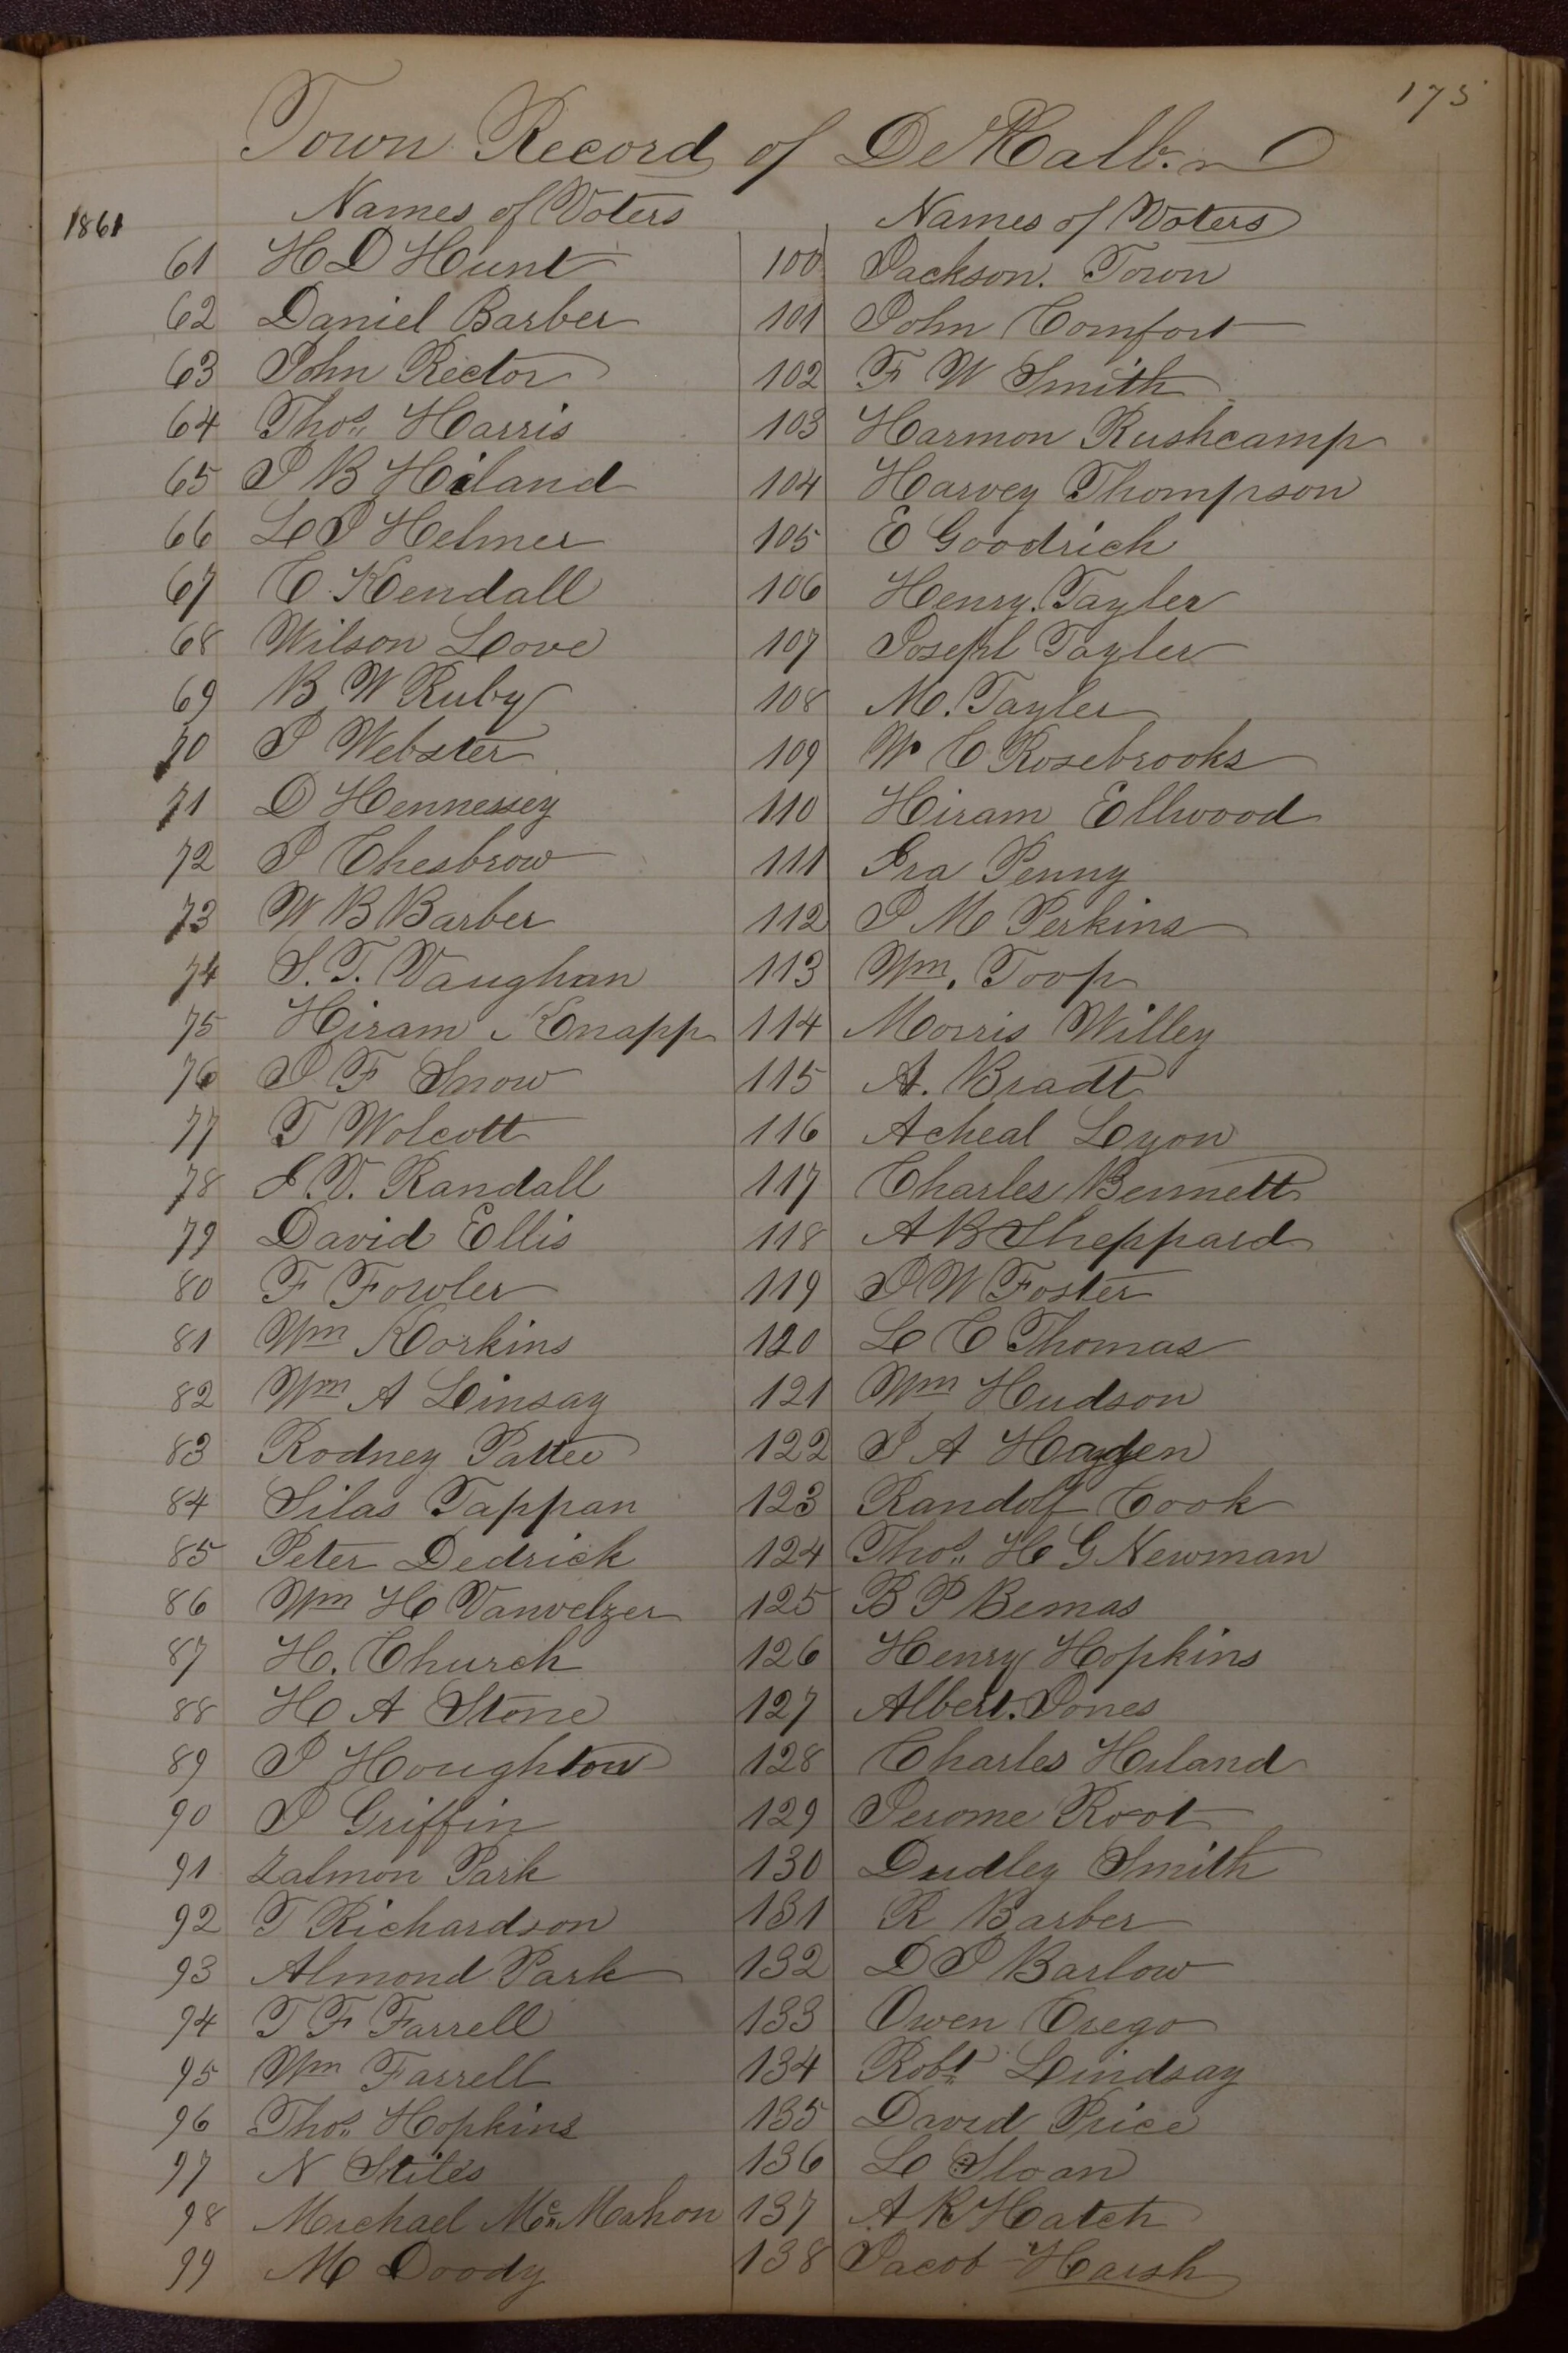 175
Town Record of DeKalb.
1861
Names of Voters
61 H D Hunt
62 Daniel Barber
63 John Rector
64 Thos. Harris
65 J B Hiland
66 L J Helmer
67 C. Kendall
68 Wilson Love
69 B W Ruby
70 J Webster
71 D Hennessey
72 J Chesbrow
73 W B Barber
74 S. T. Vaughan
75 Hiram Knapp
76 J F Snow
77 T Wolcott
78 I. V. Randall
79 David Ellis
80 F Fowler
81 Wm Korkins
82 Wm A Linsay
83 Rodney Pattee
84 Silas Tappan
85 Peter Dedrick
86 Wm H Vanvelzer
87 H. Church
88 H A Stone
89 J Houghton
90 J Griffin
91 Zalmon Park
92 T Richardson
93 Almond Park
94 T F Farrell
95 Wm Farrell
96 Thos. Hopkins
97 N Stiles
98 Michael Mc Mahon
99 M Doody
Names of Voters
100 Jackson. Town
101 John Comfort
102 F W Smith
103 Harmon Rushcamp
104 Harvey Thompson
105 E Goodrich
106 Henry. Tayler
107 Joseph Tayler
108 M. Tayler
109 W C Rosebrooks
110 Hiram Ellwood
111 Ira Penny
112 J M Perkins
113 Wm. Toop
114 Morris Willey
115 A. Bradt
116 Acheal Lyon
117 Charles Bennett
118 A B Sheppard
119 J W Foster
120 L C Thomas
121 Wm Hudson
122 J A Hayden
123 Randolf Cook
124 Thos. H G Newman
125 B P Bemas
126 Henry Hopkins
127 Albert. Jones
128 Charles Hiland
129 Jerome Root
130 Dudley Smith
131 R Barber
132 D J Barlow
133 Owen Crego
134 Robt. Lindsay
135 David Price
136 L Sloan
137 A R Hatch
138 Jacob Harsh